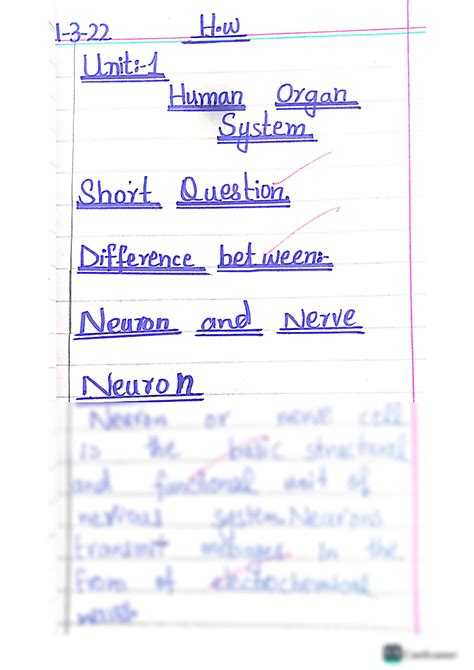 1-3-22 H.W
Unit:-1
Human Organ
System
Short Question.
Difference between:-
Neuron and Nerve
Neuron
Neuron or nerve cell
is the basic structural
and functional unit of
system. Neurons
transmit in the
of electrochemical